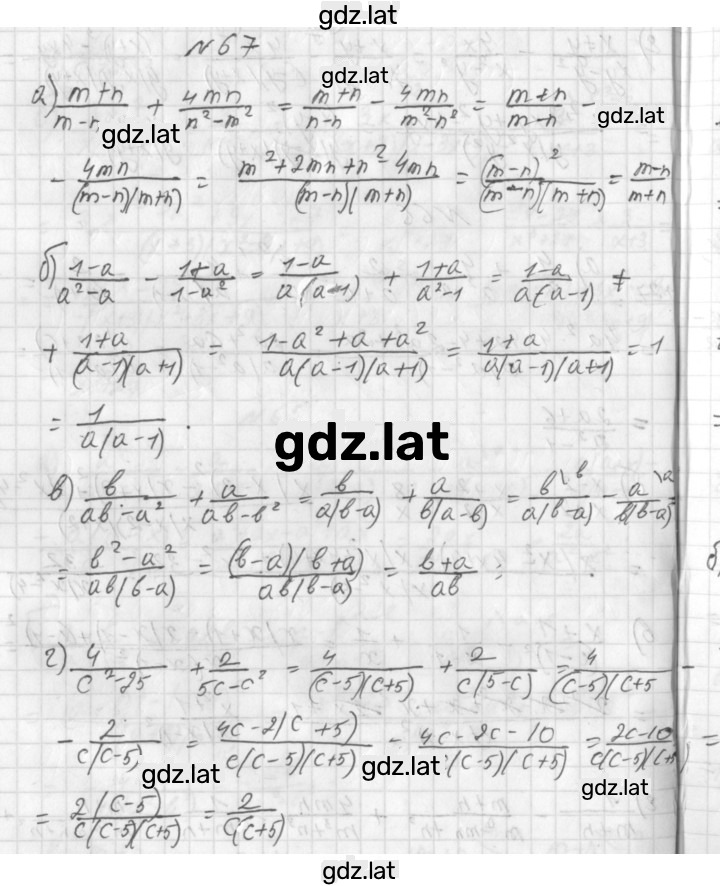 gdz.lat
№67
gdz.lat
а) (m+n)/(m-n) + 4mn/(n²-m²) = (m+n)/(n-n) - 4mn/(m²-n²) = (m+n)/(m-n) -
gdz.lat gdz.lat
- 4mn/((m-n)(m+n)) = (m²+2mn+n²-4mn)/((m-n)(m+n)) = (m-n)²/((m-n)(m+n)) = (m-n)/(m+n)
б) (1-a)/(a²-a) - (1+a)/(1-a²) = (1-a)/(a(a-1)) + (1+a)/(a²-1) = (1-a)/(a(a-1)) +
+ (1+a)/((a-1)(a+1)) = (1-a²+a+a²)/(a(a-1)(a+1)) = (1+a)/(a(a-1)(a+1)) = 1
= 1/(a(a-1)).
gdz.lat
в) b/(ab-a²) + a/(ab-b²) = b/(a(b-a)) + a/(b(a-b)) = b\b/(a(b-a)) - a\a/(b(b-a)) =
= (b²-a²)/(ab(b-a)) = (b-a)(b+a)/(ab(b-a)) = (b+a)/(ab);
г) 4/(c²-25) + 2/(5c-c²) = 4/((c-5)(c+5)) + 2/(c(5-c)) = 4/((c-5)(c+5) -
- 2/(c(c-5)) = (4c-2(c+5))/(c(c-5)(c+5)) - (4c-2c-10)/((c-5)(c+5)) = (2c-10)/(c(c-5)(c+5)) =
gdz.lat gdz.lat gdz.lat
= 2(c-5)/(c(c-5)(c+5)) = 2/(c(c+5))
gdz.lat